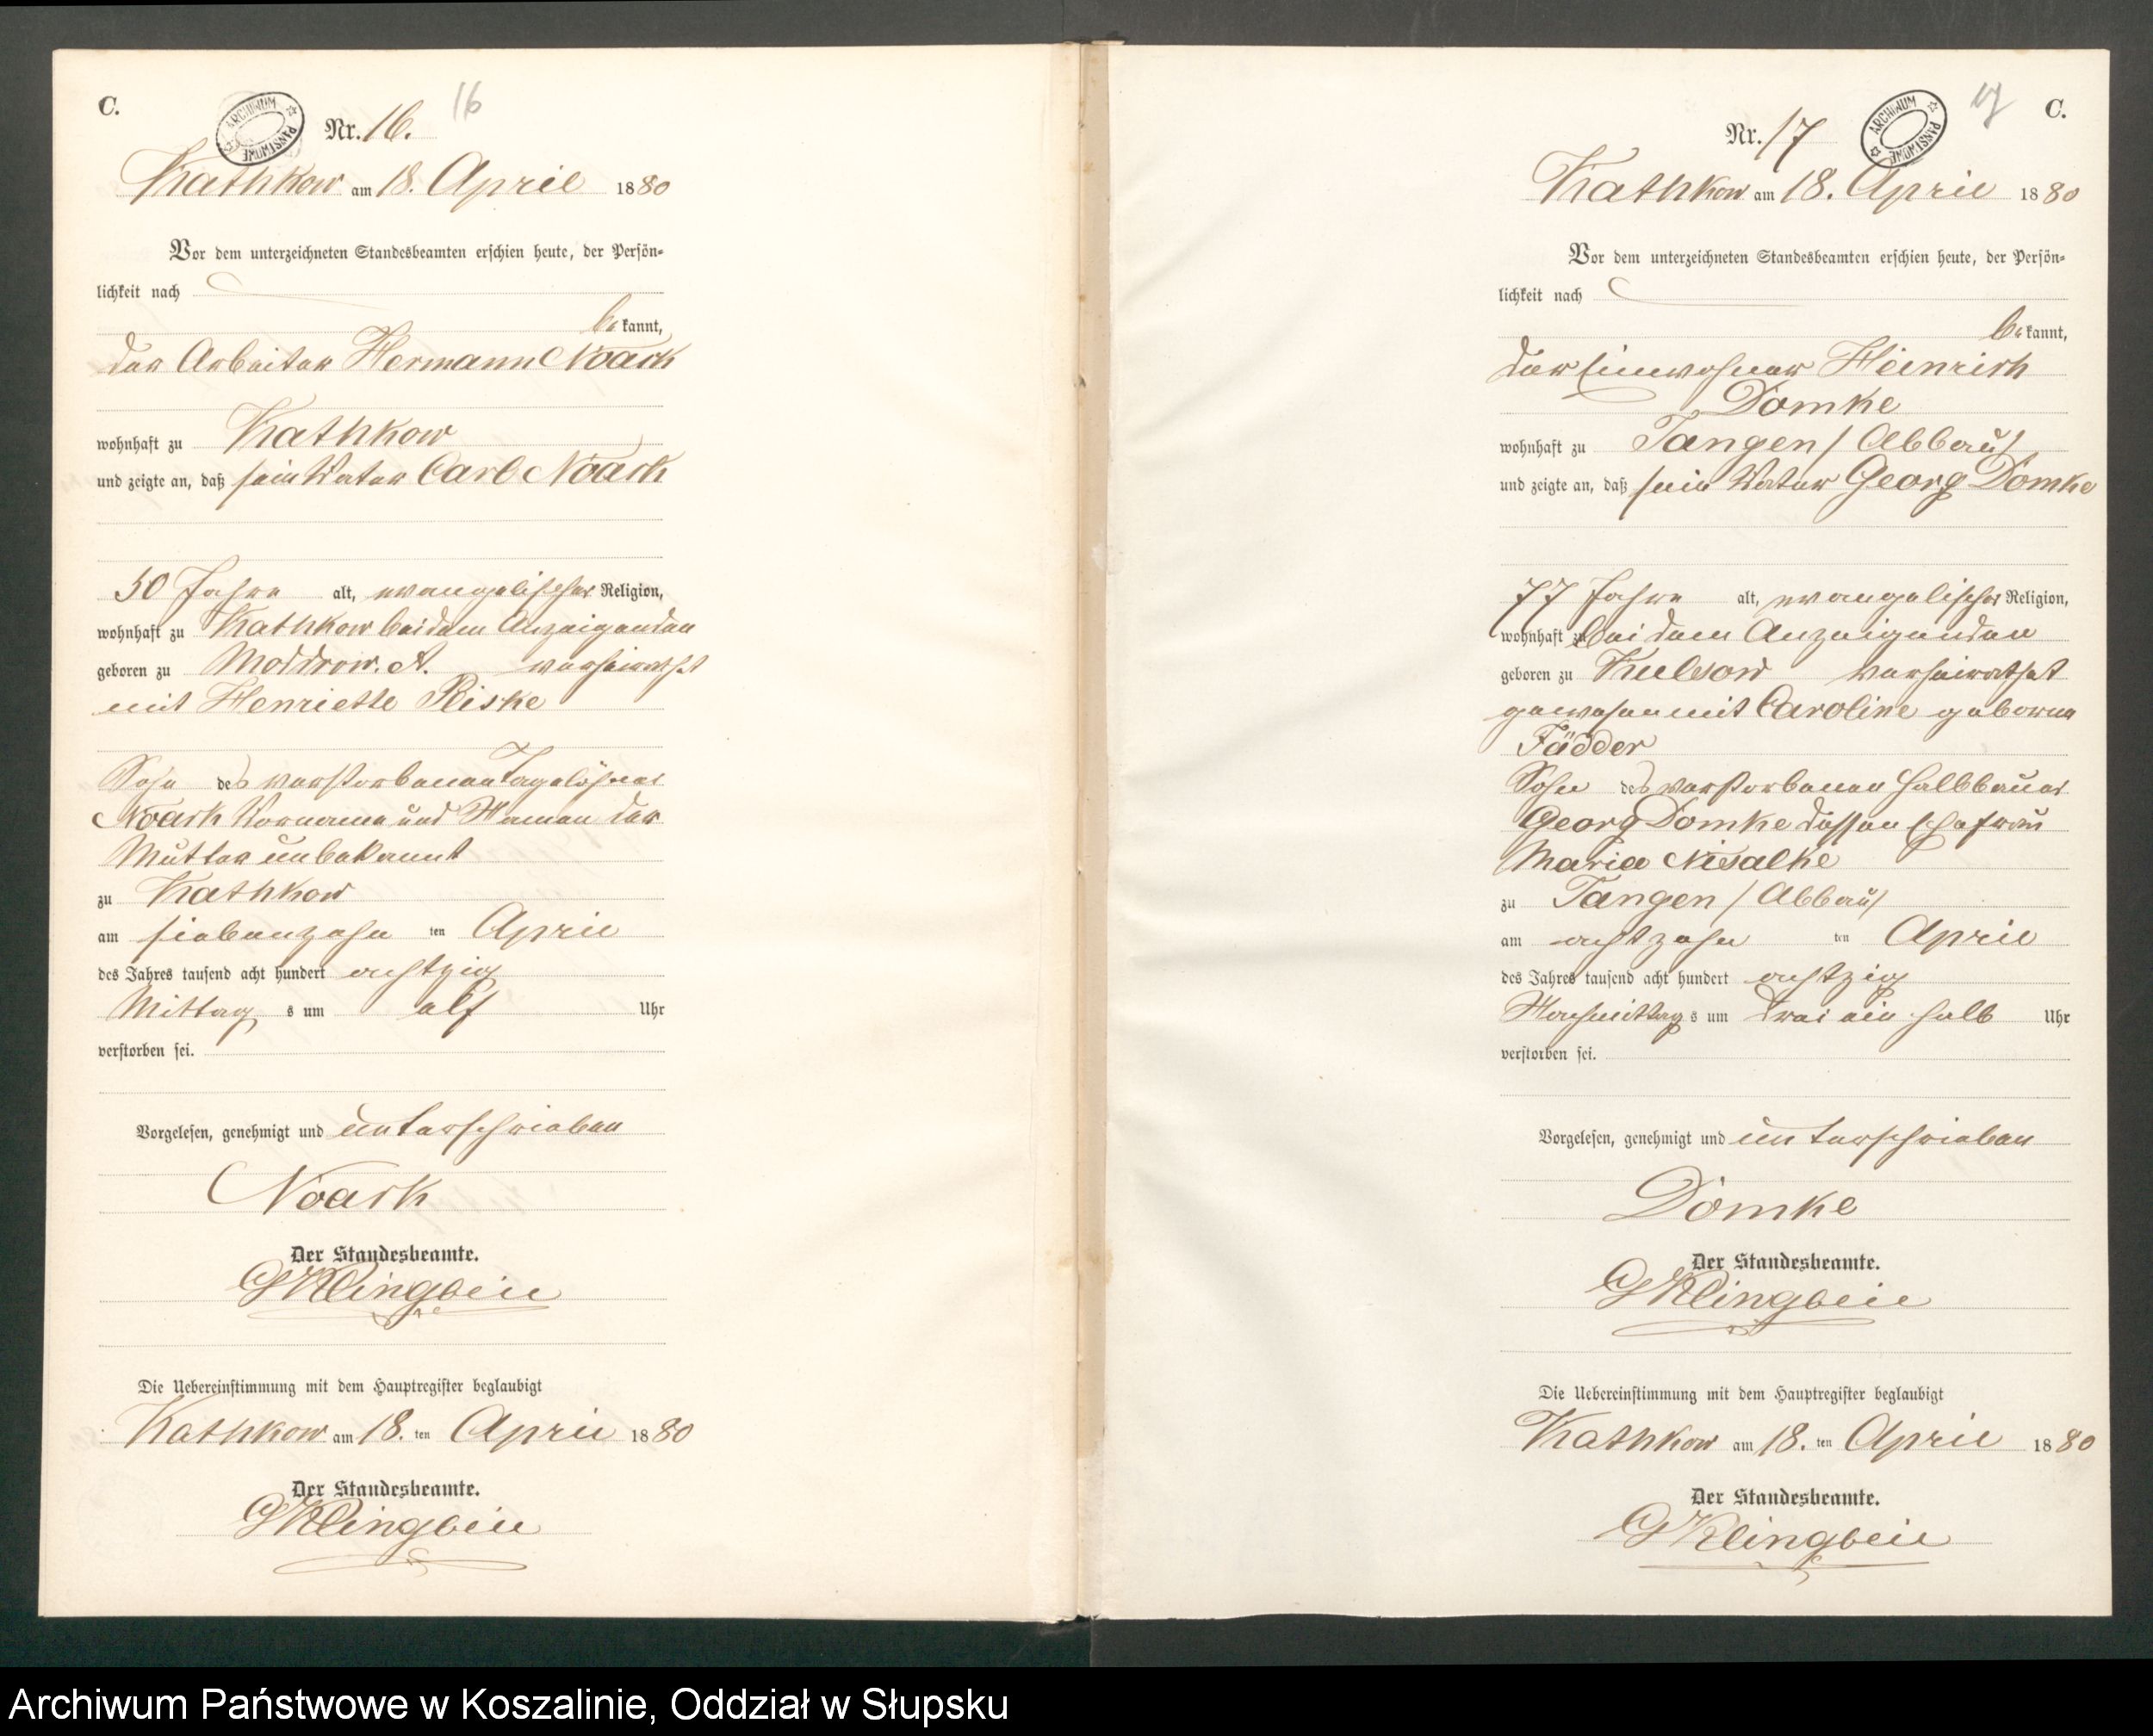 C.
ARCHIWUM PAŃSTWOWE
Nr. 16.
16
Kathkow am 18. April 1880
Vor dem unterzeichneten Standesbeamten erschien heute, der Persön-
lichkeit nach
bekannt,
der Arbeiter Hermann Noack
wohnhaft zu Kathkow
und zeigte an, daß sein Vater Carl Noack
50 Jahre alt, evangelischer Religion,
wohnhaft zu Kathkow bei dem Anzeigenden
geboren zu Moddrow. A. verheirathet
mit Henriette Piske
Sohn des verstorbenen Tagelöhner
Noack Vorname und Namen der
Mutter unbekannt
zu Kathkow
am siebenzehn ten April
des Jahres tausend acht hundert achtzig
Mittag s um elf Uhr
verstorben sei.
Vorgelesen, genehmigt und unterschrieben
Noack
Der Standesbeamte.
G Klingbeil
Die Uebereinstimmung mit dem Hauptregister beglaubigt
Kathkow am 18. ten April 1880
Der Standesbeamte.
G Klingbeil
C.
17
ARCHIWUM PAŃSTWOWE
Nr. 17
Kathkow am 18. April 1880
Vor dem unterzeichneten Standesbeamten erschien heute, der Persön-
lichkeit nach
bekannt,
der Einwohner Heinrich
Domke
wohnhaft zu Tangen / Abbau /
und zeigte an, daß sein Vater Georg Domke
77 Jahre alt, evangelischer Religion,
wohnhaft zu bei dem Anzeigenden
geboren zu Kulsow verheirathet
gewesen mit Caroline geborne
Fädder
Sohn des verstorbenen Halbbauer
Georg Domke dessen Ehefrau
Maria Nisalke
zu Tangen / Abbau /
am achtzehn ten April
des Jahres tausend acht hundert achtzig
Nachmittag s um drei ein halb Uhr
verstorben sei.
Vorgelesen, genehmigt und unterschrieben
Domke
Der Standesbeamte.
G Klingbeil
Die Uebereinstimmung mit dem Hauptregister beglaubigt
Kathkow am 18. ten April 1880
Der Standesbeamte.
G Klingbeil
Archiwum Państwowe w Koszalinie, Oddział w Słupsku